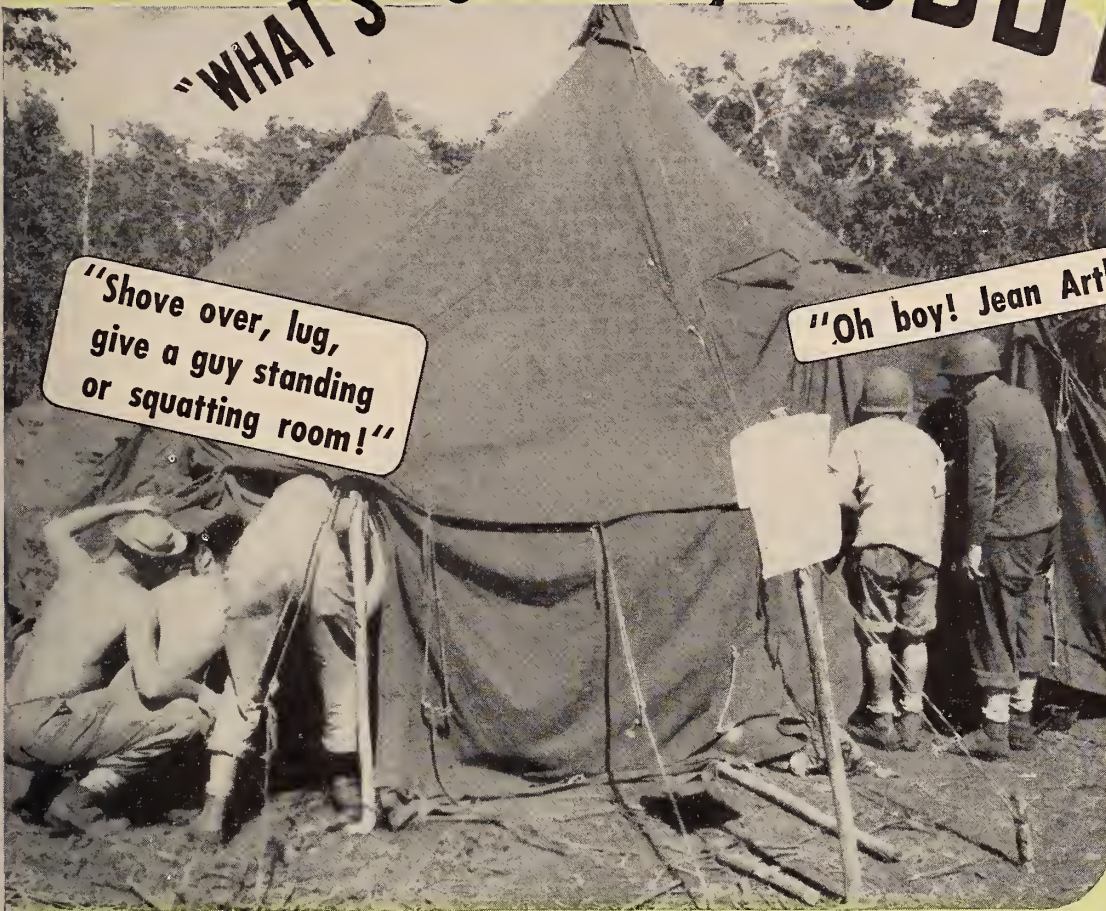 "WHAT'S
"Shove over, lug,
give a guy standing
or squatting room!"
"Oh boy! Jean